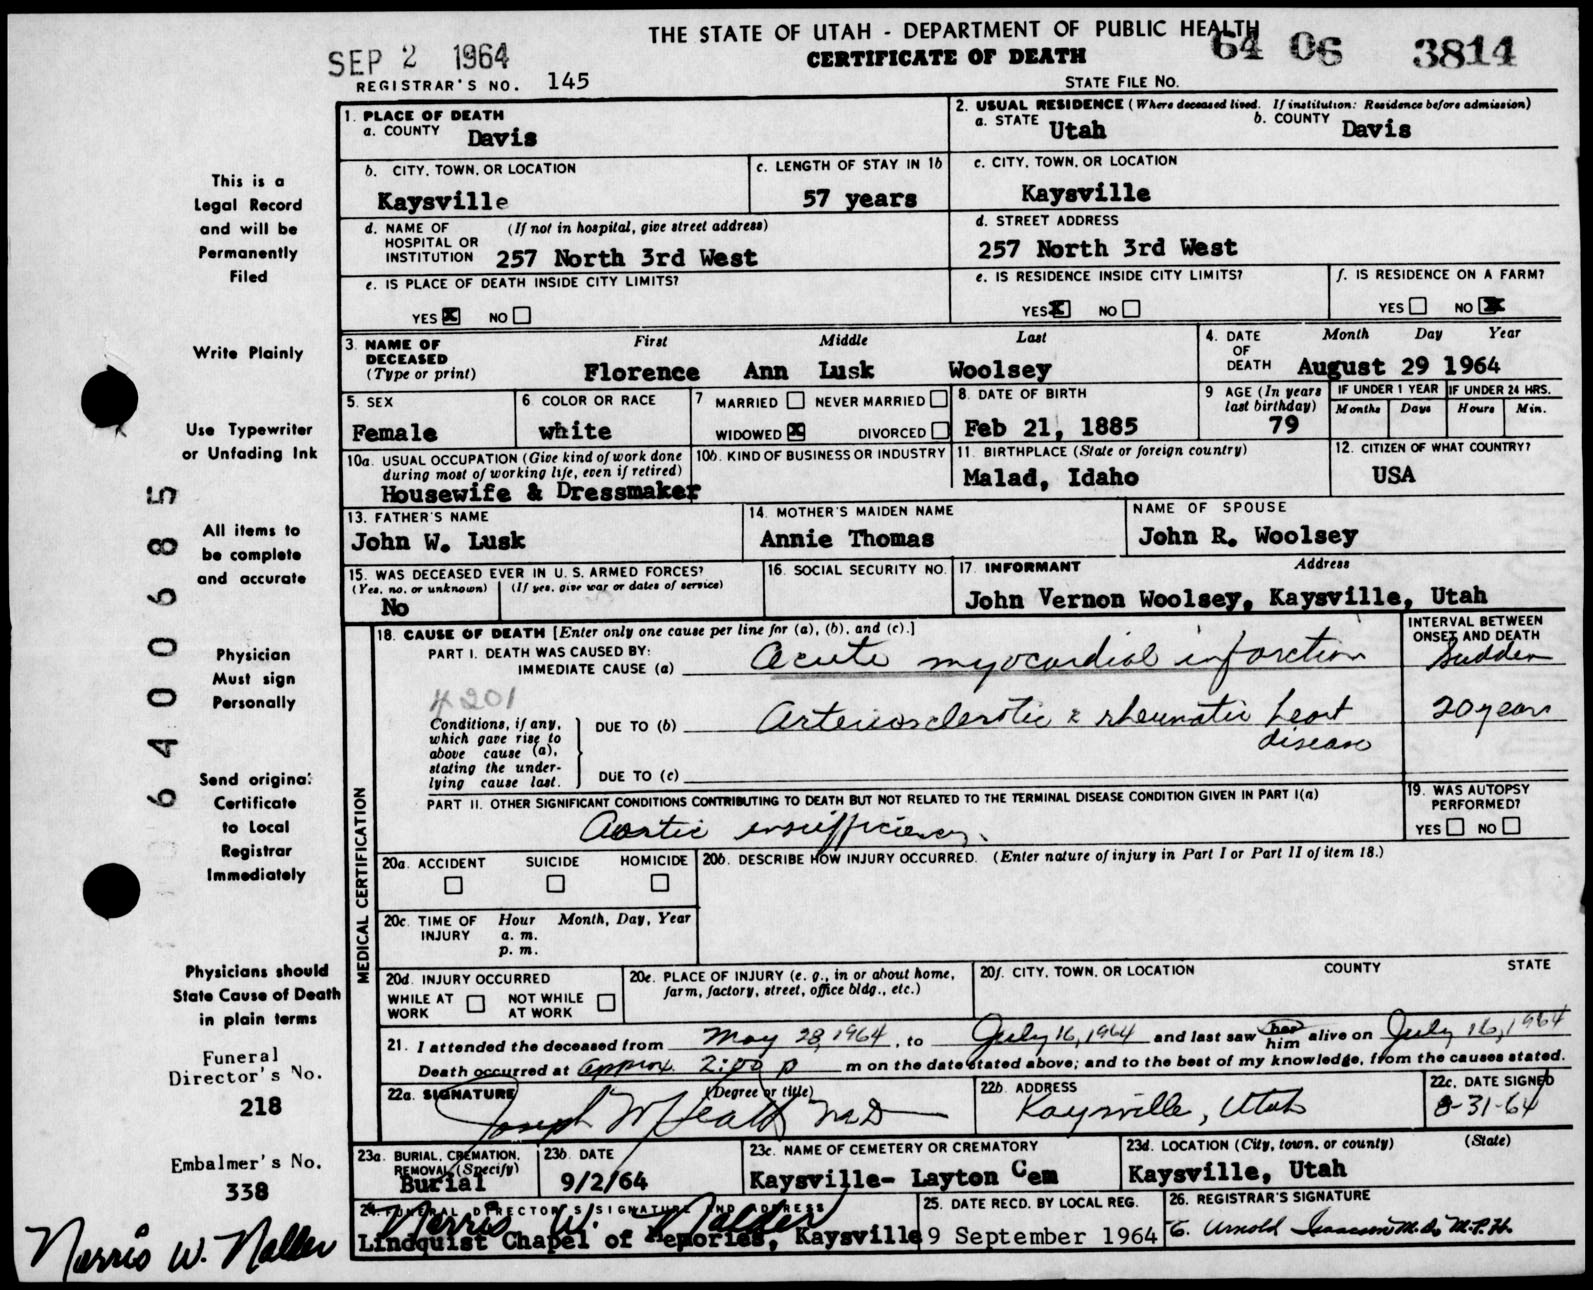 THE STATE OF UTAH - DEPARTMENT OF PUBLIC HEALTH
CERTIFICATE OF DEATH
SEP 2 1964
REGISTRAR'S NO. 145
64 06 3814
STATE FILE NO.
This is a
Legal Record
and will be
Permanently
Filed
Write Plainly
Use Typewriter
or Unfading Ink
All items to
be complete
and accurate
Physician
Must sign
Personally
Send original
Certificate
to Local
Registrar
Immediately
Physicians should
State Cause of Death
in plain terms
Funeral
Director's No.
218
Embalmer's No.
338
Norris W. Nalder
6400685
1. PLACE OF DEATH
a. COUNTY Davis
2. USUAL RESIDENCE (Where deceased lived. If institution: Residence before admission)
a. STATE Utah b. COUNTY Davis
b. CITY, TOWN, OR LOCATION
Kaysville
c. LENGTH OF STAY IN 1b
57 years
c. CITY, TOWN, OR LOCATION
Kaysville
d. NAME OF (If not in hospital, give street address)
HOSPITAL OR
INSTITUTION 257 North 3rd West
d. STREET ADDRESS
257 North 3rd West
e. IS PLACE OF DEATH INSIDE CITY LIMITS?
YES X NO
e. IS RESIDENCE INSIDE CITY LIMITS?
YES X NO
f. IS RESIDENCE ON A FARM?
YES NO X
3. NAME OF First Middle Last
DECEASED
(Type or print) Florence Ann Lusk Woolsey
4. DATE Month Day Year
OF
DEATH August 29 1964
5. SEX
Female
6. COLOR OR RACE
white
7 MARRIED NEVER MARRIED
WIDOWED X DIVORCED
8. DATE OF BIRTH
Feb 21, 1885
9 AGE (In years
last birthday)
79
IF UNDER 1 YEAR IF UNDER 24 HRS.
Months Days Hours Min.
10a. USUAL OCCUPATION (Give kind of work done
during most of working life, even if retired)
Housewife & Dressmaker
10b. KIND OF BUSINESS OR INDUSTRY
11. BIRTHPLACE (State or foreign country)
Malad, Idaho
12. CITIZEN OF WHAT COUNTRY?
USA
13. FATHER'S NAME
John W. Lusk
14. MOTHER'S MAIDEN NAME
Annie Thomas
NAME OF SPOUSE
John R. Woolsey
15. WAS DECEASED EVER IN U. S. ARMED FORCES?
(Yes, no, or unknown) (If yes, give war or dates of service)
No
16. SOCIAL SECURITY NO.
17. INFORMANT Address
John Vernon Woolsey, Kaysville, Utah
18. CAUSE OF DEATH [Enter only one cause per line for (a), (b), and (c).]
INTERVAL BETWEEN
ONSET AND DEATH
PART I. DEATH WAS CAUSED BY:
IMMEDIATE CAUSE (a) Acute myocardial infarction Sudden
4201
Conditions, if any,
which gave rise to
above cause (a),
stating the under-
lying cause last.
DUE TO (b) Arteriosclerotic & rheumatic heart
disease
20 years
DUE TO (c)
PART II. OTHER SIGNIFICANT CONDITIONS CONTRIBUTING TO DEATH BUT NOT RELATED TO THE TERMINAL DISEASE CONDITION GIVEN IN PART I(a)
Aortic insufficiency.
19. WAS AUTOPSY
PERFORMED?
YES NO
MEDICAL CERTIFICATION
20a. ACCIDENT SUICIDE HOMICIDE
20b. DESCRIBE HOW INJURY OCCURRED. (Enter nature of injury in Part I or Part II of item 18.)
20c. TIME OF Hour Month, Day, Year
INJURY a. m.
p. m.
20d. INJURY OCCURRED
WHILE AT NOT WHILE
WORK AT WORK
20e. PLACE OF INJURY (e. g., in or about home,
farm, factory, street, office bldg., etc.)
20f. CITY, TOWN, OR LOCATION COUNTY STATE
21. I attended the deceased from May 28, 1964, to July 16, 1964 and last saw her him alive on July 16, 1964
Death occurred at approx. 2:00 p m on the date stated above; and to the best of my knowledge, from the causes stated.
22a. SIGNATURE (Degree or title)
Joseph W Heath MD
22b. ADDRESS
Kaysville, Utah
22c. DATE SIGNED
8-31-64
23a. BURIAL, CREMATION,
REMOVAL (Specify)
Burial
23b. DATE
9/2/64
23c. NAME OF CEMETERY OR CREMATORY
Kaysville- Layton Cem
23d. LOCATION (City, town, or county) (State)
Kaysville, Utah
24. FUNERAL DIRECTOR'S SIGNATURE AND ADDRESS
Norris W. Nalder
Lindquist Chapel of Memories, Kaysville
25. DATE RECD. BY LOCAL REG.
9 September 1964
26. REGISTRAR'S SIGNATURE
C. Arnold Isaacson M.D., M.P.H.